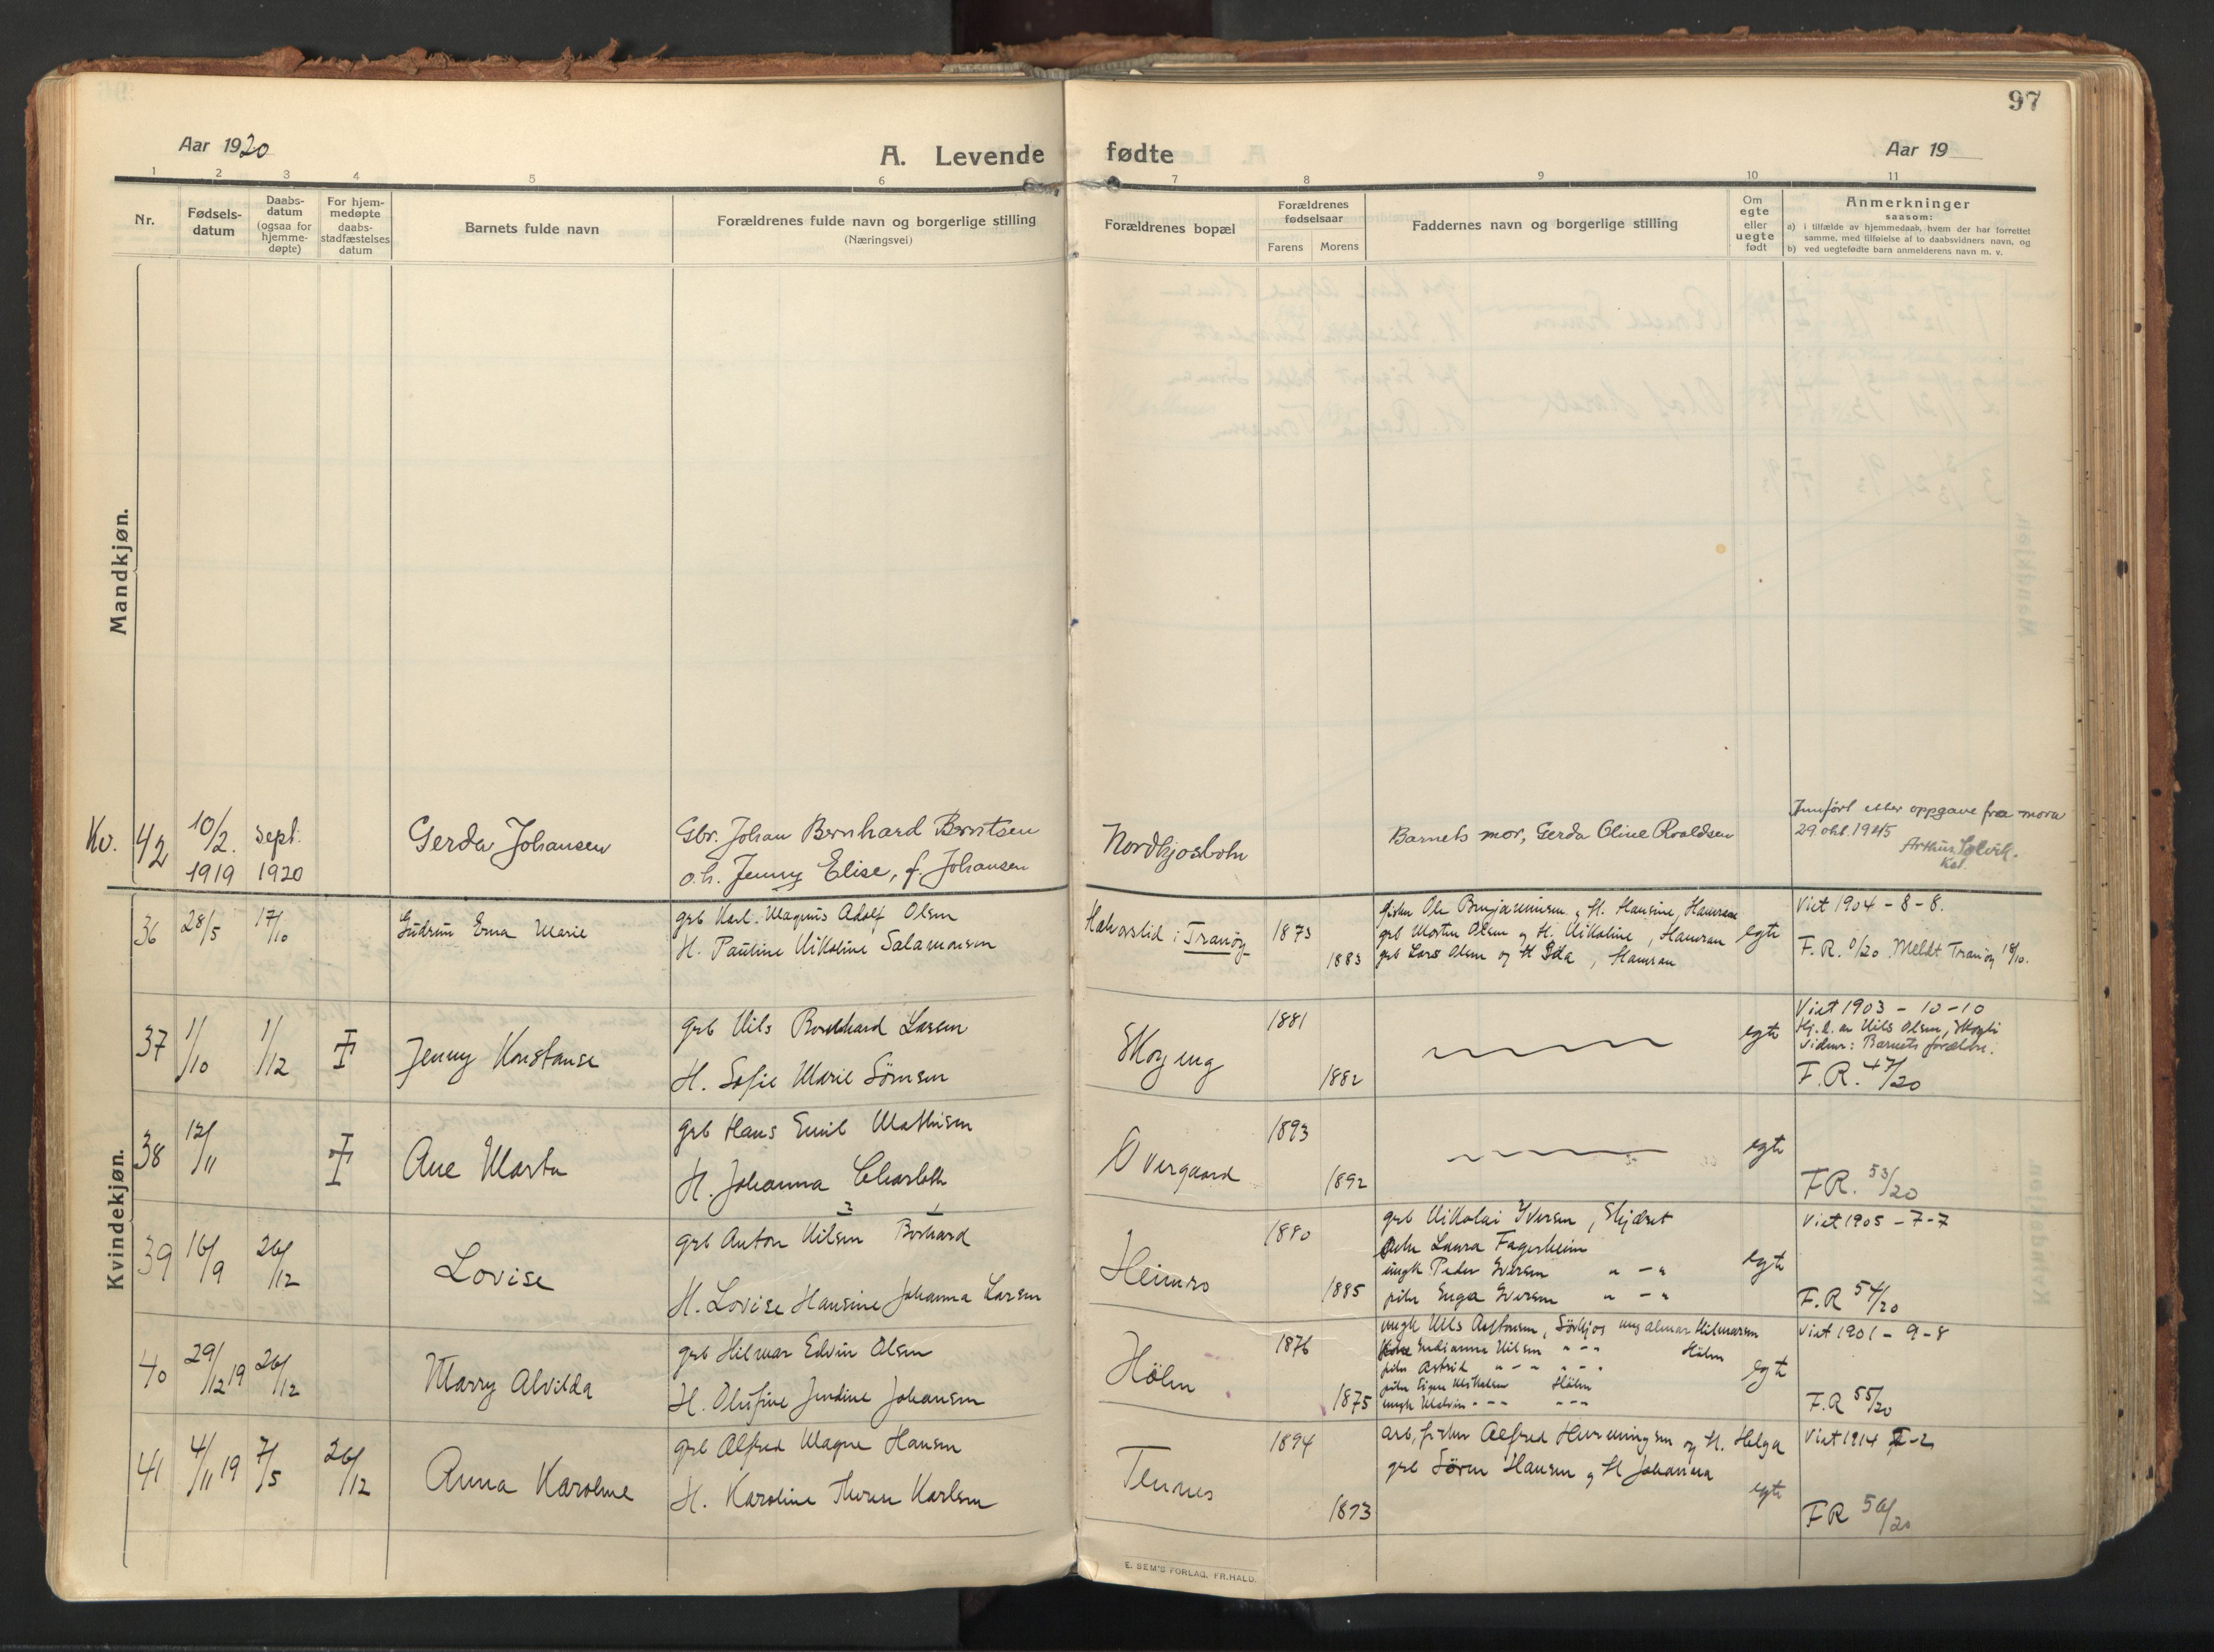 97
Aar 1920
A. Levende fødte
Aar 19
1 2 3 4 5 6 7 8 9 10 11
Nr.
Fødsels-
datum
Daabs-
datum
(ogsaa for
hjemme-
døpte)
For hjem-
medøpte
daabs-
stadfæstelses
datum
Barnets fulde navn
Forældrenes fulde navn og borgerlige stilling
(Næringsvei)
Forældrenes bopæl
Forældrenes
fødselsaar
Farens Morens
Faddernes navn og borgerlige stilling
Om
egte
eller
uegte
født
Anmerkninger
saasom:
a) i tilfælde av hjemmedaab, hvem der har forrettet
samme, med tilføielse af to daabsvidners navn, og
b) ved uegtefødte barn anmelderens navn m. v.
Mandkjøn.
Kv. 42
10/2.
1919
Sept.
1920
Gerda Johansen
Gbr. Johan Bernhard Berntsen
o.h. Jenny Elise, f. Johansen
Nordkjosbotn
Barnets mor, Gerda Oline Roaldsen
Innført etter oppgave fra mora
29 okt. 1945
Kvindekjøn.
36 28/5 17/10
Gudrun Erna Marie
grb Karl Magnus Adolf Olsen
H. Pauline Nikoline Salamonsen
i Tranöy
1873
1883
grb Morten Olsen og H. Nikoline, Hamran
grb Lars Olsen og H Ida, Hamran
egte
Viet 1904 - 8 - 8.
F. R. /20 Meldt Tranöy 18/10.
37 1/10 1/12
Jenny Konstanse
grb Nils Larsen
H. Sofie Marie Sörensen
Skogeng
1881
1882
egte
Viet 1903 - 10 - 10
Hj.d. av Nils Olsen,
Vidner: Barnets forældre.
F. R. 47/20
38 12/11
Ane Marta
grb Hans Emil Mathisen
H. Johanna Charlotte
Övergaard
1893
1892
egte
F R. 53/20
39 16/9 26/12
Lovise
grb Anton Nilsen Borhard
H. Lovise Hansine Johanna Larsen
Heimro
1880
1885
grb Nikolai Iversen,
Laura Fagerheim
ungk Peder Iversen " - "
pike Inga Iversen " - "
egte
Viet 1905 - 7 - 7
F. R 54/20
40 29/12 19 26/12
Marry Alvilda
grb Hilmar Edvin Olsen
H. Olufine Jendine Johansen
Hölen
1876
1875
ungk Nils ung Almar Hilmarsen
Nilsen " - " Hölen
pike Astrid " - " " - "
Hölen
egte
Viet 1901 - 9 - 8
F. R 55/20
41 4/11 19 7/5 26/12
Anna Karoline
grb Alfred Magne Hansen
H. Karoline Karlsen
Tennes
1894
1893
arb, fisker Alfred Henningsen og H. Helga
grb Sören Hansen og H Johanna
egte
Viet 1914
F R 56/20
E. SEM'S FORLAG, FR.HALD.